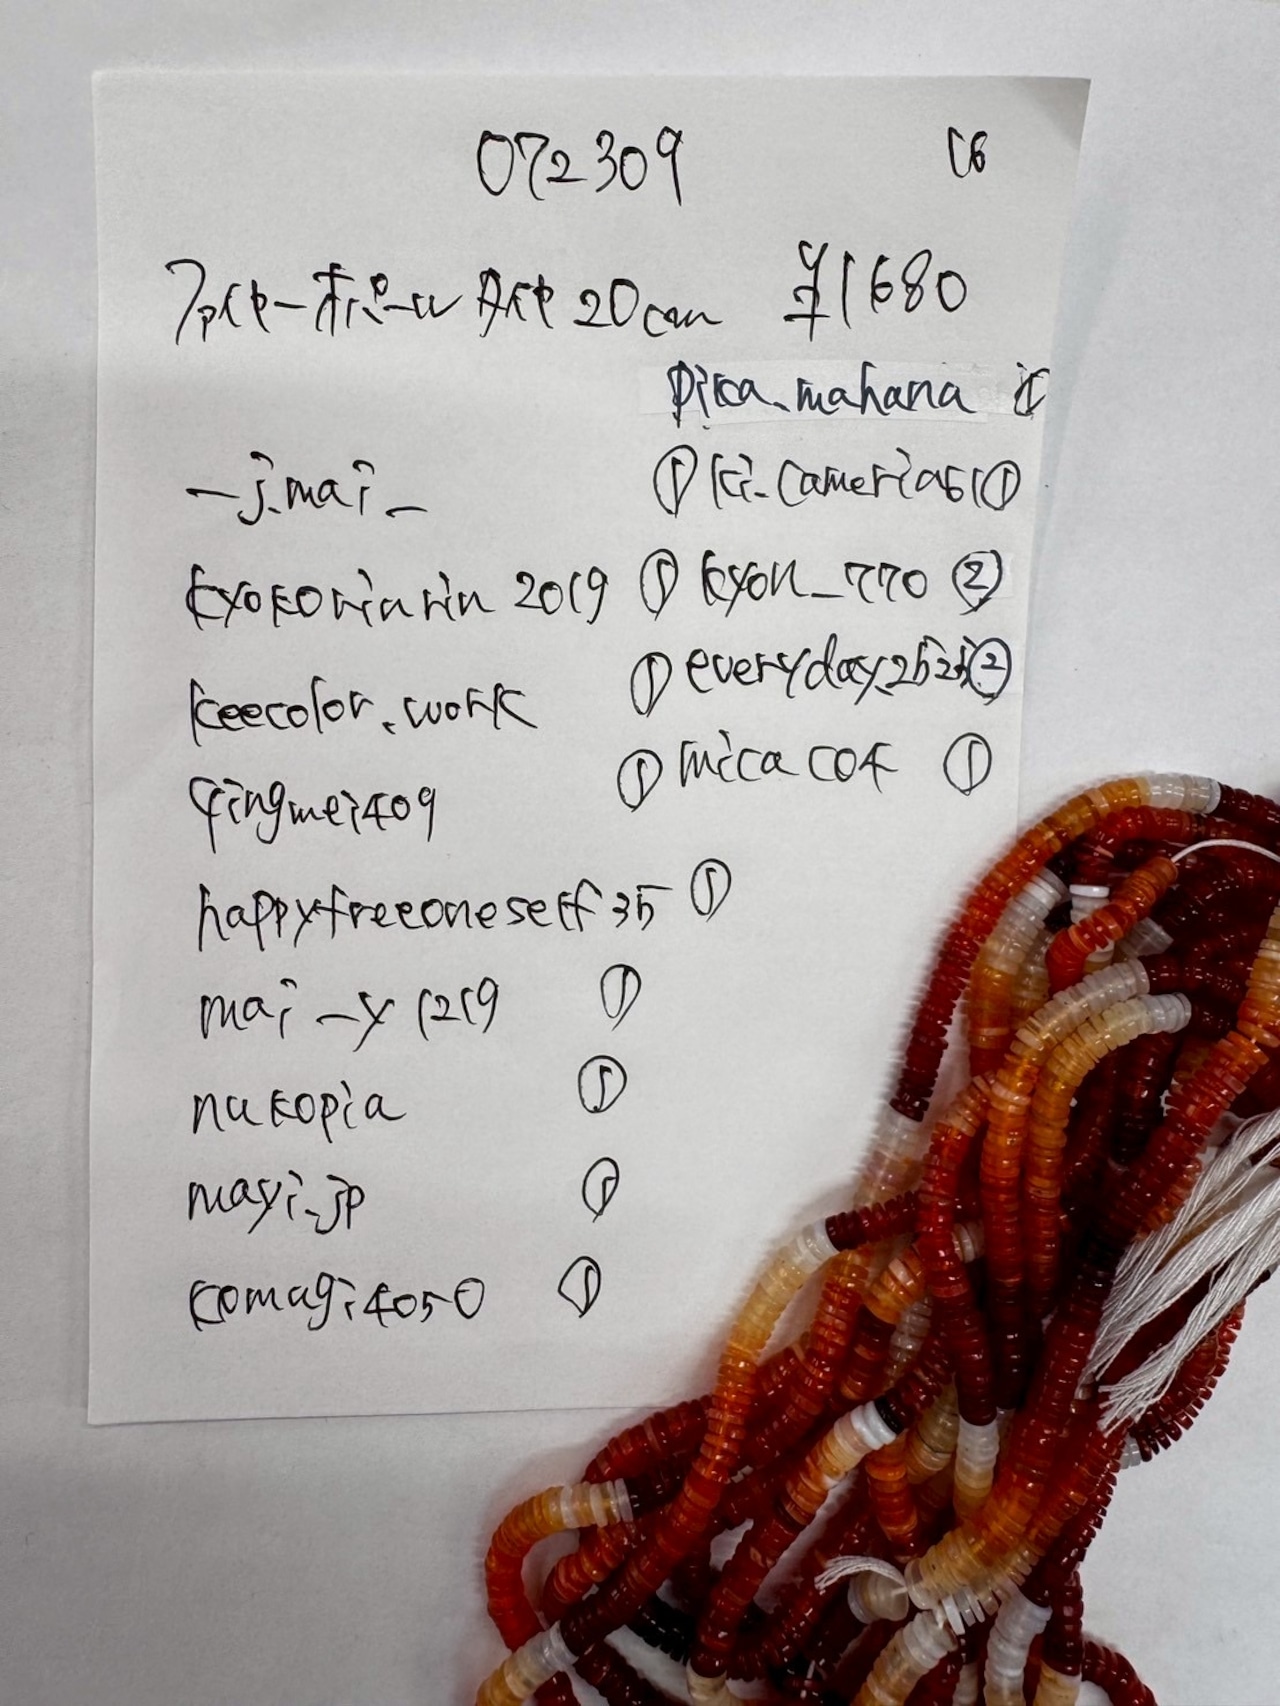 072309 16
ファイヤーオパール タイヤ 20cm ¥1680
pika_mahana ①
_j.mai_ ① ki_cameria51 ①
kyokorinrin 2019 ① kyon_770 ②
keecolor.work ① everyday.2525 ②
qingmei409 ① micaco4 ①
happyfreeoneself35 ①
mai_y1219 ①
nukopia ①
mayi_jp ①
komagi4050 ①